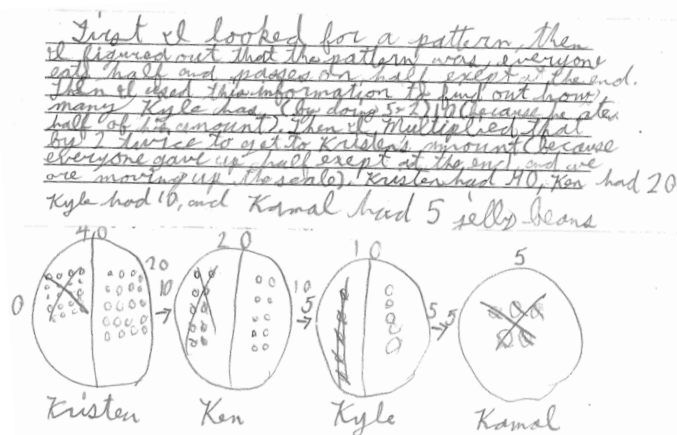 First I looked for a pattern, then
I figured out that the pattern was, everyone
eats half and passes on half exept at the end.
Then I used this information to find out how
many Kyle has (by doing 5x2) 10 (because he ate
half of his amount). Then I Multiplied that
by 2 twice to get to Kristen's amount (because
everyone gave up half exept at the end and we
are moving up the scale). Kristen had 40, Ken had 20
Kyle had 10, and Kamal had 5 jelly beans
40 20 10 5
0 20 10 10 5 5 5
Kristen Ken Kyle Kamal